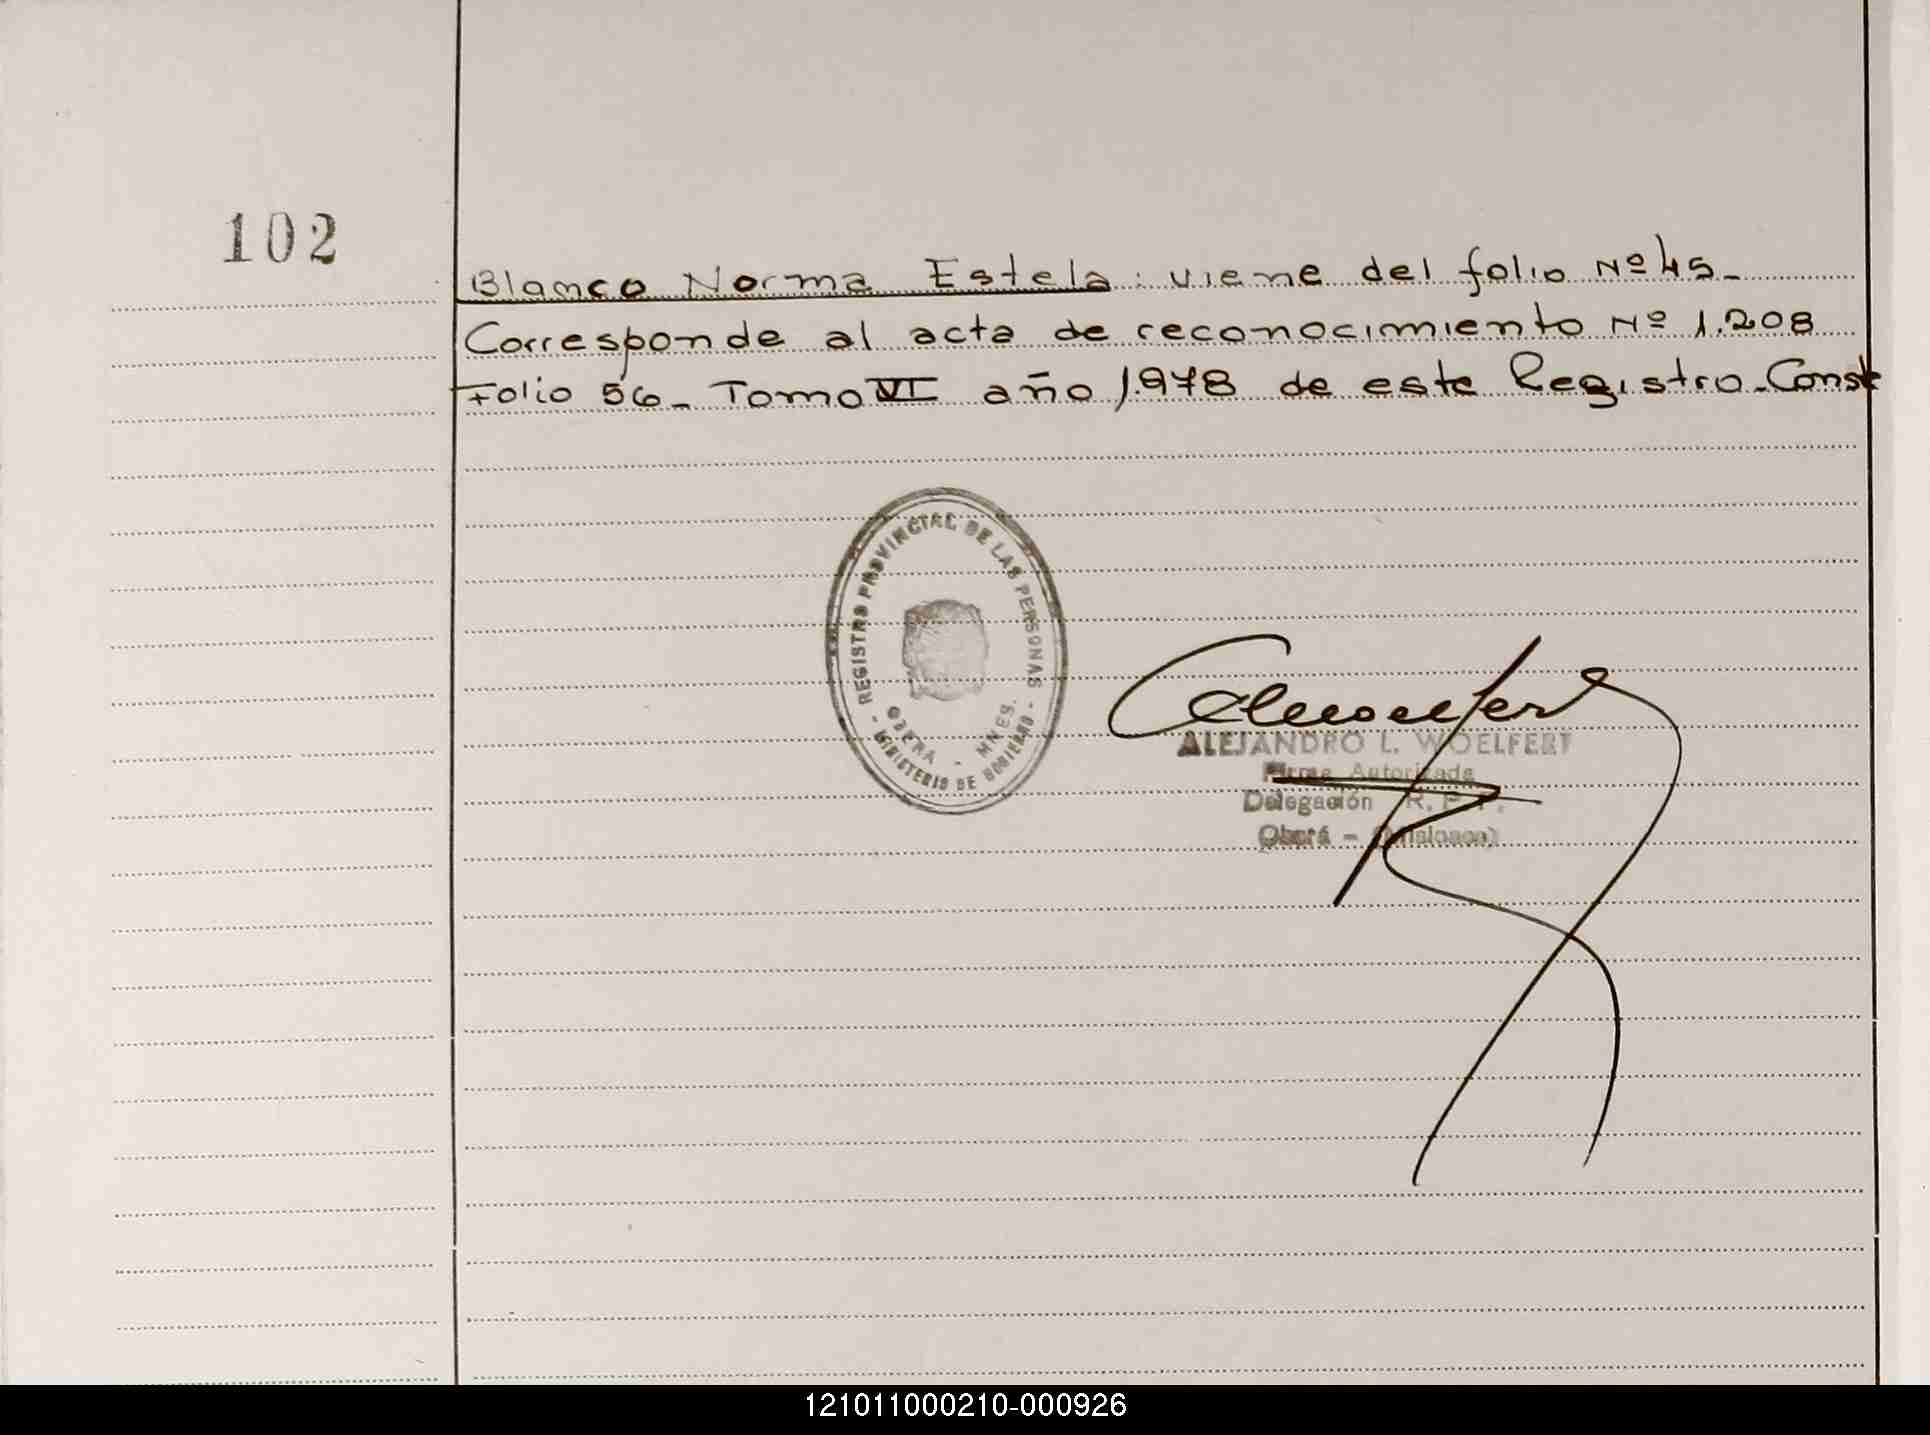 102
Blanco Norma Estela: viene del folio Nº 45_
Corresponde al acta de reconocimiento Nº 1.208
Folio 56_ Tomo VI año 1.978 de este Registro_Conste
- REGISTRO PROVINCIAL DE LAS PERSONAS -
OBERA - MNES.
MINISTERIO DE GOBIERNO
ALEJANDRO L. WOELFERT
Firma Autorizada
Delegación R. P. P.
Oberá - (Misiones)
121011000210-000926